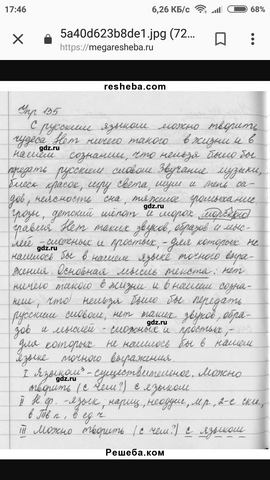 17:46
6,26 КБ/с
63%
5a40d623b8de1.jpg (72...
https://megaresheba.ru
resheba.com
Упр 135
С русским языком можно творить
чудеса. Нет ничего такого в жизни и в
нашем сознании, что нельзя было бы
предать русским словом. Звучание музыки,
блеск красок, игру света, шум и тень са-
дов, неясность сна, тяжкое громыхание
грозы, детский шепот и шорох
гравия. Нет таких звуков, образов и мыс-
лей - сложных и простых, - для которых не
нашлось бы в нашем языке точного выра-
жения. Основная мысль текста: нет
ничего такого в жизни и в нашем созна-
нии, что нельзя было бы передать
русским словом, нет таких звуков, обра-
зов и мыслей - сложных и простых, -
для которых не нашлось бы в нашем
языке точного выражения.
I Языком - существительное. Можно
творить (с чем?) с языком
II Н.ф. - язык, нариц, неодуш, м.р, 2-е скл,
в Тв п, в ед ч.
III Можно творить (с чем?) с языком
gdz.ru
gdz.ru
gdz.ru
gdz.ru
gdz.ru
gdz.ru
gdz.ru
Решеба.ком